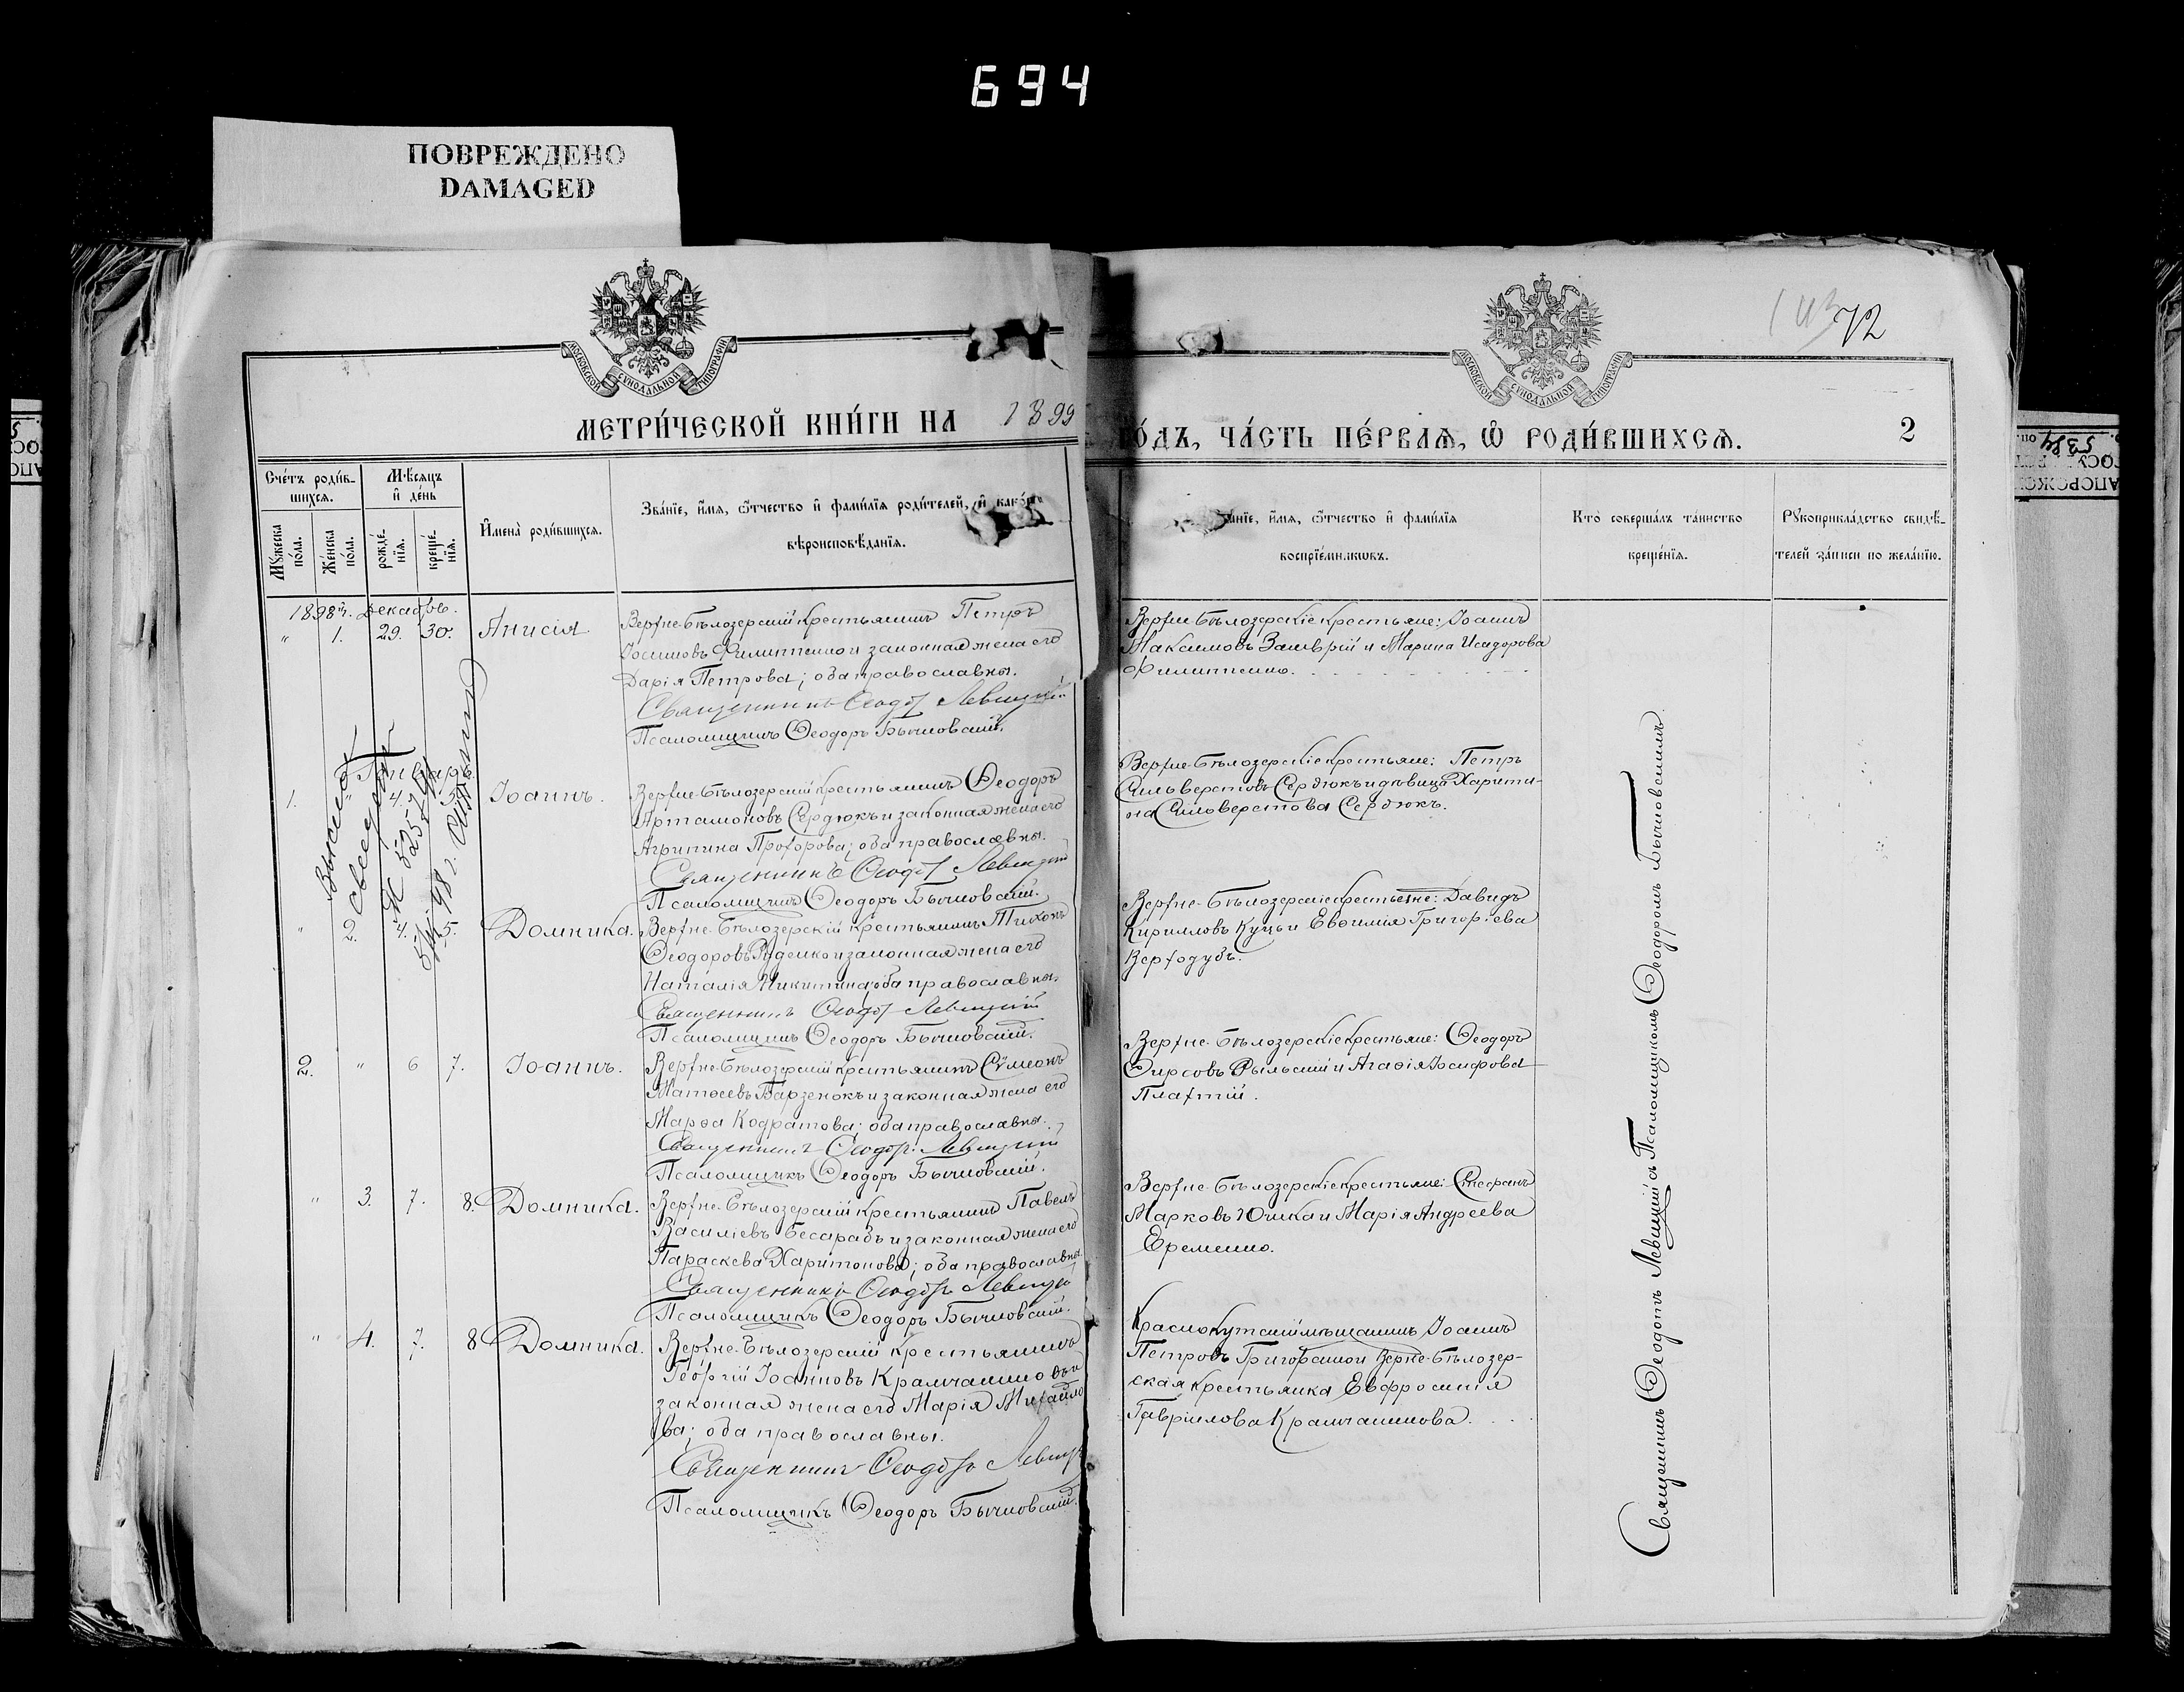 694
ПОВРЕЖДЕНО
DAMAGED
МОСКОВСКОЙ СѴНОДАЛЬНОЙ ТИПОГРАФІИ
МОСКОВСКОЙ СѴНОДАЛЬНОЙ ТИПОГРАФІИ
72
МЕТРИ́ЧЕСКОЙ КНИ́ГИ НА 1899
ГО́ДЪ, ЧА́СТЬ ПЕ́РВАѦ, Ѽ РОДИ́ВШИХСѦ.
2
Сче́тъ роди́в-
шихсѧ.
Мꙋ́жеска по́ла.
Же́нска по́ла.
Мѣ́сѧцъ
и҆ де́нь
рожде́-
нїѧ.
креще́-
нїѧ.
И҆мена̀ роди́вшихсѧ.
Зва́нїе, и҆́мѧ, ѻ҆́тчество и҆ фами́лїѧ роди́телей, и҆ како́гѡ
вѣроисповѣ́данїѧ.
Зва́нїе, и҆́мѧ, ѻ҆́тчество и҆ фами́лїѧ
воспрїе́мникѡвъ.
Кто̀ соверша́лъ та́инство
креще́нїѧ.
Рꙋкоприкла́дство свидѣ́-
телей за́писи по жела́нїю.
1898 г. Декабрь.
" 1. 29. 30. Анисія
Верхне-Бѣлозерскій крестьянинъ Петръ
Филиппенко и законная жена его
Дарія Петрова; оба православны.
Священникъ Ѳеодотъ Левицкій
Псаломщикъ Ѳеодоръ Бычковскій.
Верхне-Бѣлозерскіе крестьяне: Іоаннъ
Максимовъ и Марина Исидорова
Филиппенко.
Январь
1. " 4. 5. Іоаннъ.
Верхне-Бѣлозерскій крестьянинъ Ѳеодоръ
Артамоновъ Сердюкъ и законная жена его
Агрипина Прохорова; оба православны.
Священникъ Ѳеодотъ Левицкій
Псаломщикъ Ѳеодоръ Бычковскій.
Верхне-Бѣлозерскіе крестьяне: Петръ
Сильверстовъ Сердюкъ и дѣвица Харити-
на Сильверстова Сердюкъ.
" 2. 4. 5. Домника.
Верхне-Бѣлозерскій крестьянинъ Тихонъ
Ѳеодоровъ Руденко и законная жена его
Наталія Никитина; оба православны.
Священникъ Ѳеодотъ Левицкій
Псаломщикъ Ѳеодоръ Бычковскій.
Верхне-Бѣлозерскіе крестьяне: Давидъ
Кирилловъ Куцъ и Евѳимія Григорьева
Верходубъ.
2. " 6 7. Іоаннъ.
Верхне-Бѣлозерскій крестьянинъ Сѵмеонъ
Матѳеевъ Барзенокъ и законная жена его
Марѳа Кодратова; оба православны.
Священникъ Ѳеодотъ Левицкій
Псаломщикъ Ѳеодоръ Бычковскій.
Верхне-Бѣлозерскіе крестьяне: Ѳеодоръ
Ѳирсовъ Рыльскій и Агаѳія Іосифова
Плахтій.
" 3. 7. 8. Домника.
Верхне-Бѣлозерскій крестьянинъ Павелъ
Василіевъ Бесарабъ и законная жена его
Параскева Харитонова; оба православны
Священникъ Ѳеодотъ Левицкій
Псаломщикъ Ѳеодоръ Бычковскій.
Верхне-Бѣлозерскіе крестьяне: Стефанъ
Марковъ Юшка и Марія Андреева
Еременко.
" 4. 7. 8 Домника.
Верхне-Бѣлозерскій крестьянинъ
Георгій Іоанновъ Крамчаниновъ и
законная жена его Марія Михайло
ва; оба православны.
Священникъ Ѳеодотъ Левицкій
Псаломщикъ Ѳеодоръ Бычковскій.
Краснокутскій мѣщанинъ Іоаннъ
Петровъ и Верхне-Бѣлозер-
ская крестьянка Евфросинія
Гавріилова Крамчанинова.
Священникъ Ѳеодотъ Левицкій съ Псаломщикомъ Ѳеодоромъ Бычковскимъ.